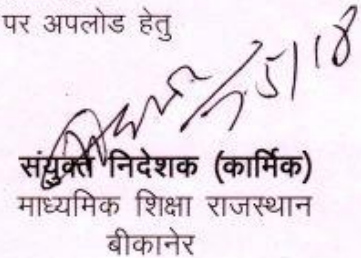 पर अपलोड हेतु
संयुक्त निदेशक (कार्मिक)
माध्यमिक शिक्षा राजस्थान
बीकानेर